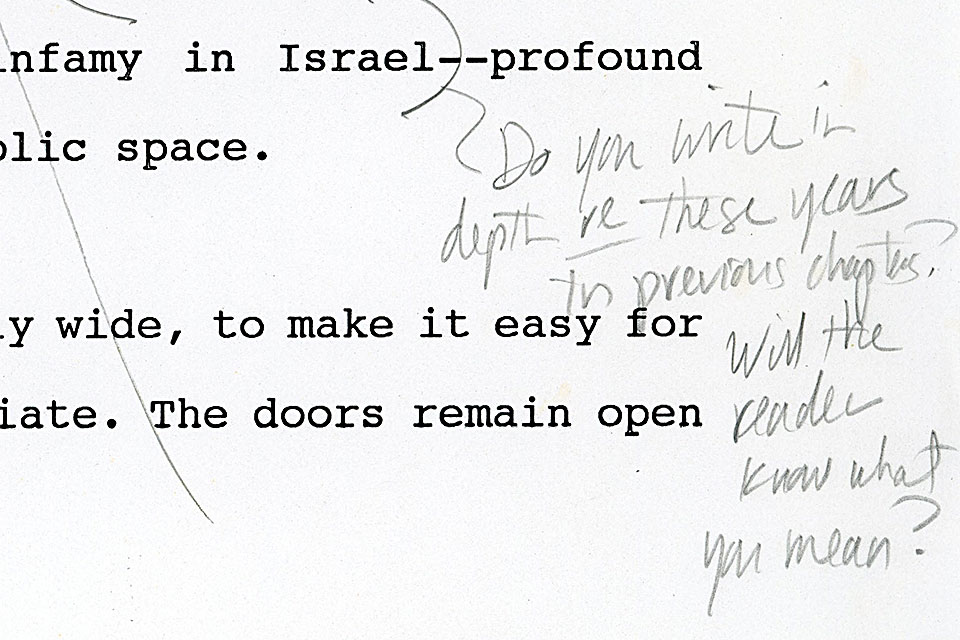 infamy in Israel--profound
blic space.
Do you write in
depth re these years
in previous chapters?
ly wide, to make it easy for
Will the
iate. The doors remain open
reader
know what
you mean?